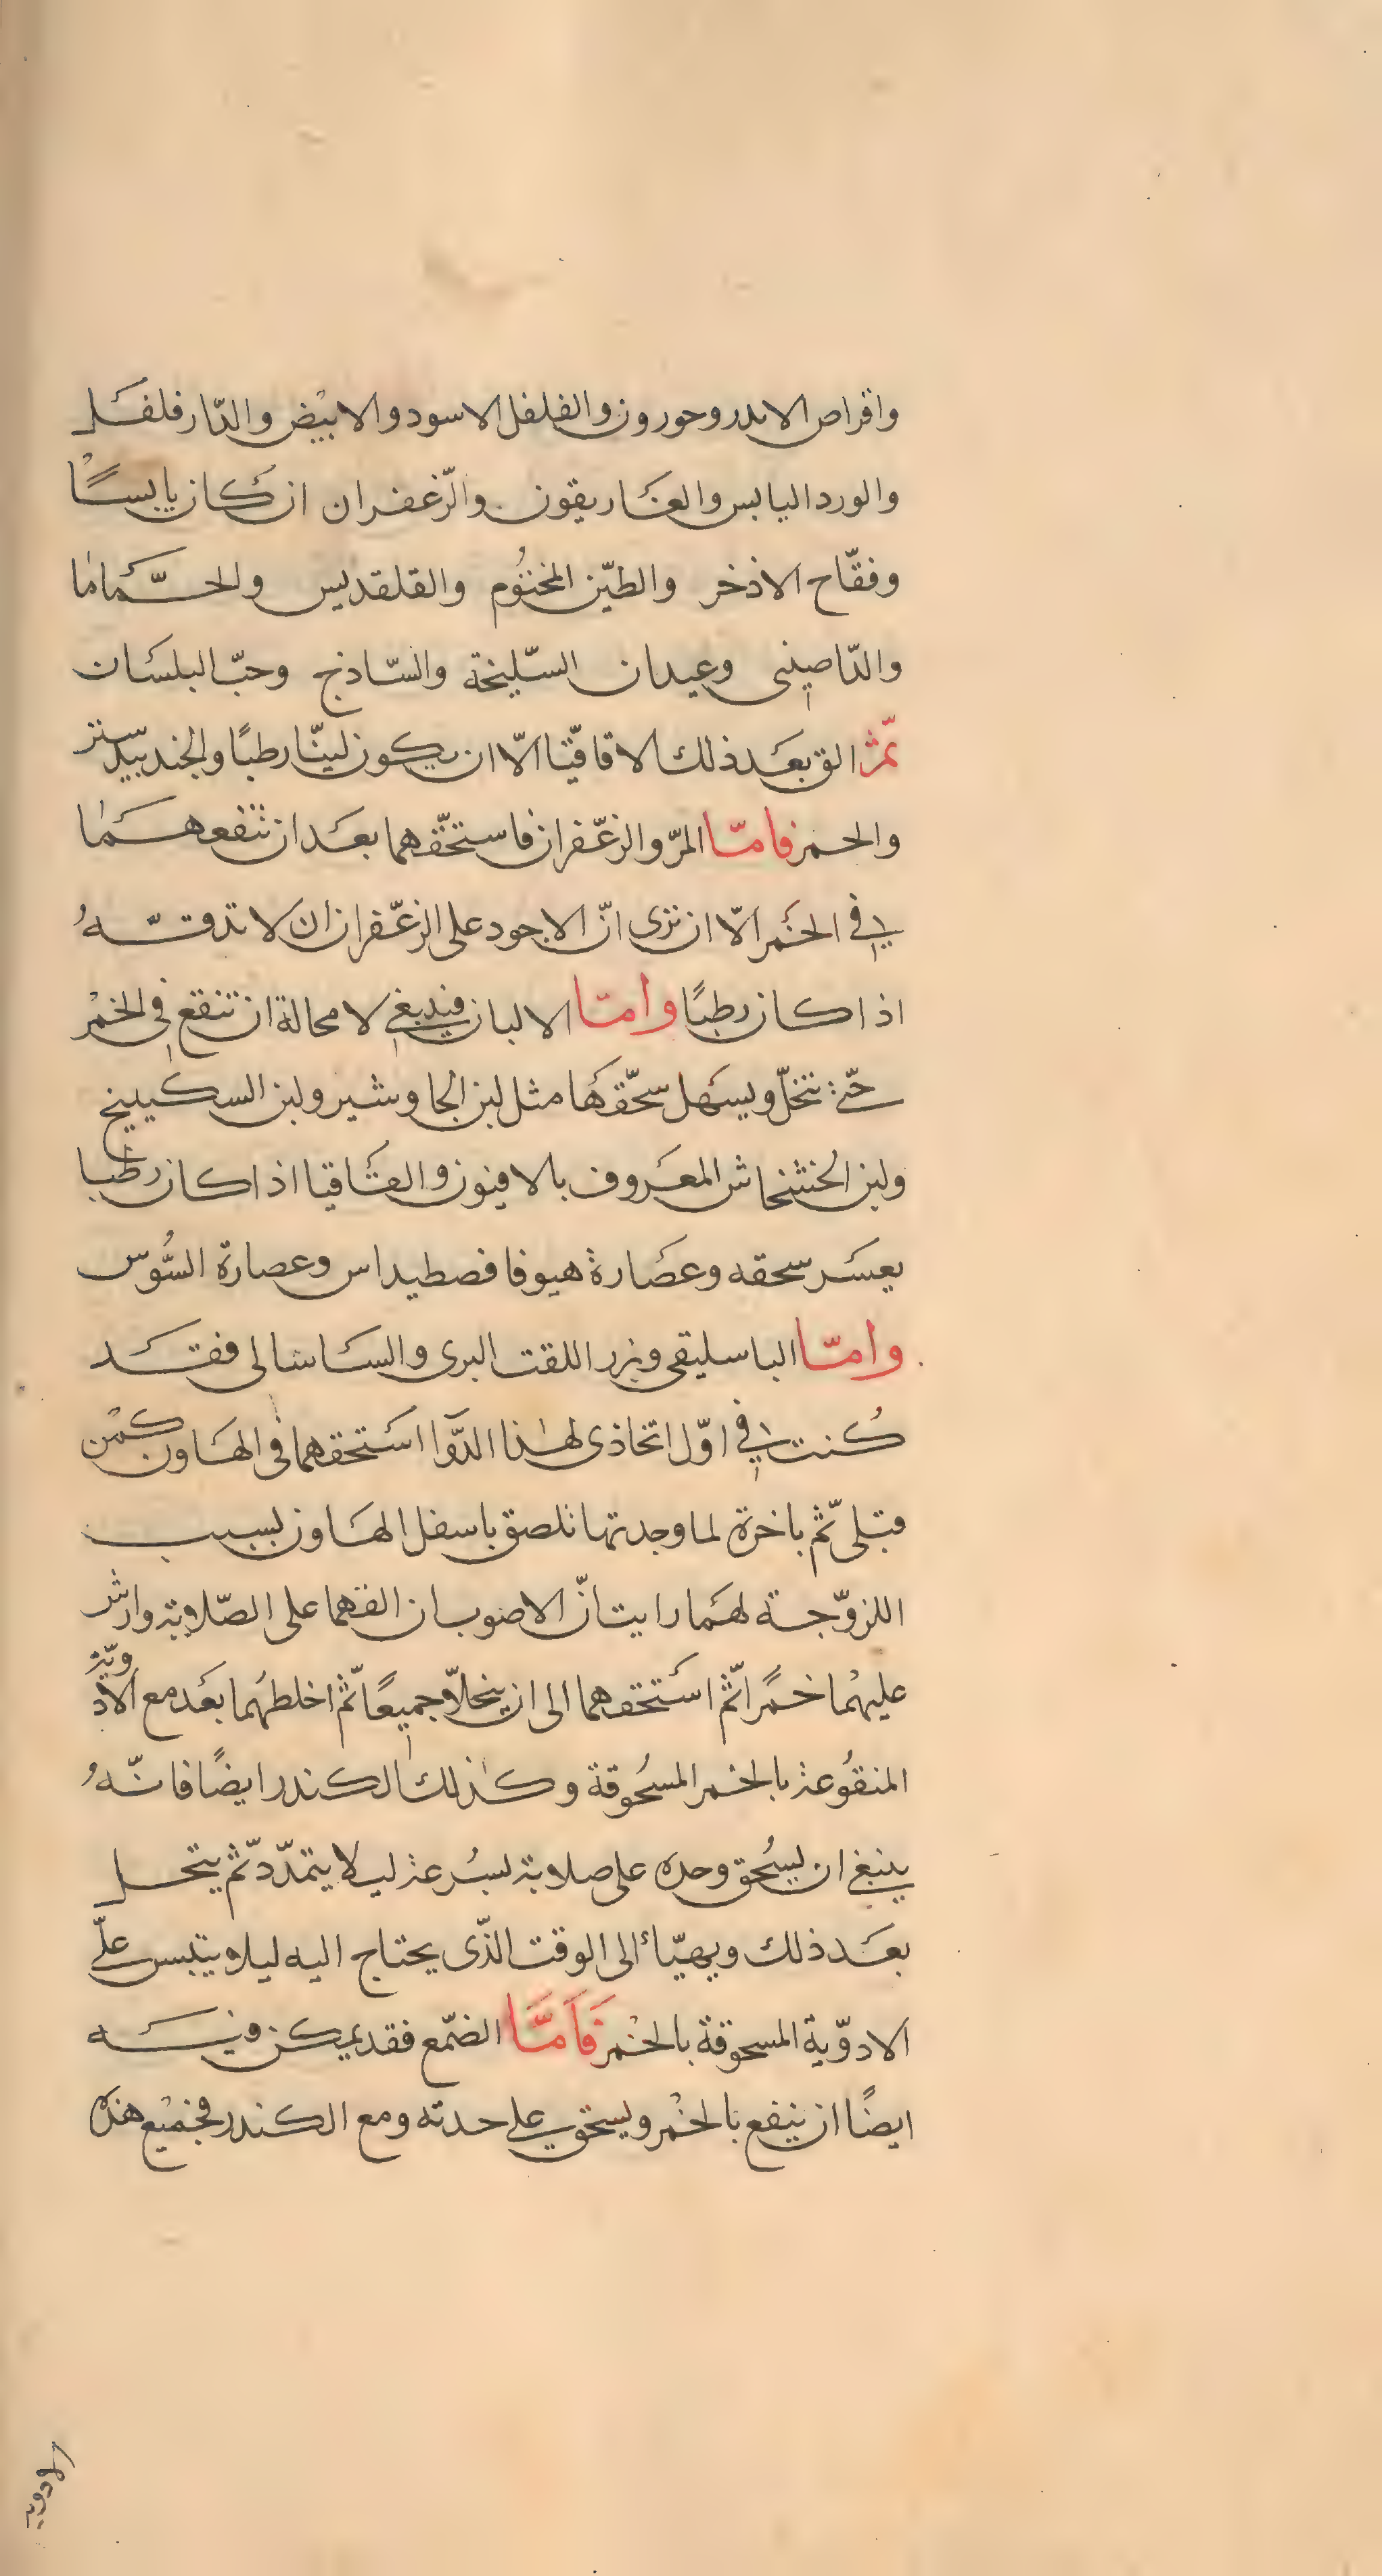 واقراص الاندروحورون والفلفل الاسود والابيض والدّار فلفل
والورد اليابس والغاريقون والزّعفران ان كان يابسًا
وفقّاح الاذخر والطيّن المختوُم والقلقديس والحمّاما
والدّاصينى وعيدان السّليخة والسّاذج وحبّ البلسان
ثمّ الق بعد ذلك الاقاقيّا الّا ان يكون ليّنا رطبًا والجندبيدستر
والخمر فامّا المرّ والزعّفران فاستحّقهما بعد ان تنقعهما
فى الخمر الّا ان ترى انّ الاجود على الزعّفران ان لا تدقّهُ
اذا كان رطبًا وامّا الالبان فينبغى لا محالة ان تنقع فى الخمْر
حتّى تنحلّ ويسهل سحّقها مثل لبن الجاوشير ولبن السكبينج
ولبن الخشخاش المعروف بالافيون والقاقيا اذا كان رطبا
يعسر سحقه وعصارة هيوفافصطيداس وعصارة السُّوس
وامّا الباسليقى وبزر اللفت البرى والساسالى فقد
كُنت فى اوّل اتخاذى لهذا الدّوآ استحقهما فى الهاون كمْن
قبلى ثمّ باخرة لما وجدتها تلصق باسفل الهاون بسبب
اللزوّجة لهما رايت انّ الاصوب ان القهما على الصّلاية وارش
عليهْما خمرًا ثمّ استحقهما الى ان ينحلاّ جميعًا ثمّ اخلطهُما بعد مع الادويّة
المنقُوعة بالخمر المسحُوقة وكذلك الكندر ايضًا فانّهُ
ينبغى ان يسُحق وحده على صلاية بسُرعة ليلا يتمدّد ثمّ ينخل
بعد ذلك ويهيّأ الى الوقت الذّى يحتاج اليه ليلا يتلبس علّى
الادوّية المسحوقة بالخمْر فَاَمَّا الصّمغ فقد يمكن فيه
ايضًا ان ينقع بالخمْر ويسحق على حدته ومع الكندر فجميْع هذه
الادوية